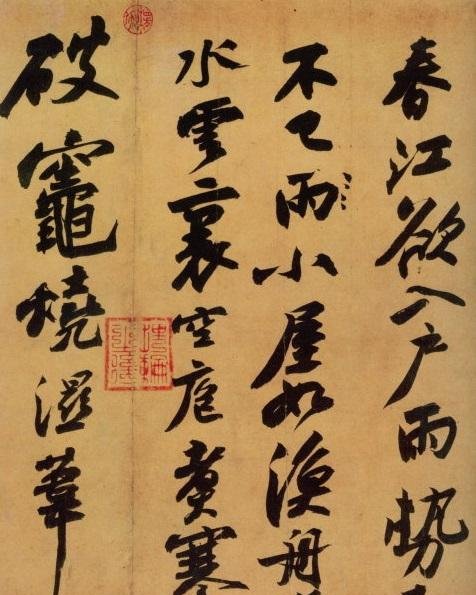 春江欲入戶雨勢
不已雨小屋如漁舟
水雲裏空庖煮寒
破竈燒濕葦